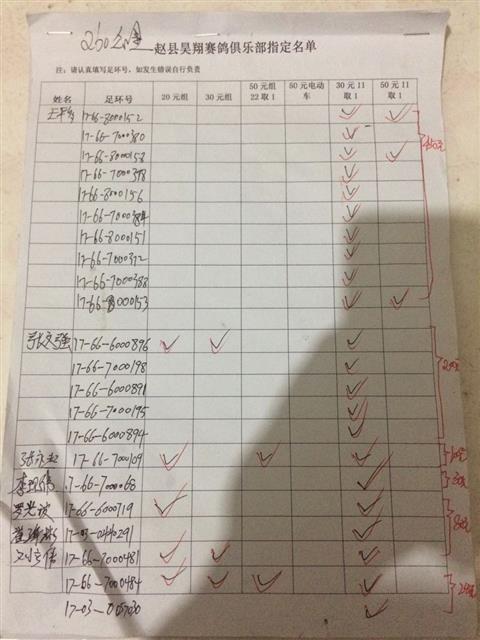 260公里 赵县昊翔赛鸽俱乐部指定名单
注:请认真填写足环号,如发生错误自行负责
姓名 足环号 20元组 30元组 50元组22取1 50元电动车 30元11取1 50元11取1
17-66-8000152 ✓ ✓
17-66-7000380 ✓
17-66-8000158 ✓ ✓
17-66-7000378 ✓
17-66-8000156 ✓
17-66-7000384 ✓
17-66-8000151 ✓
17-66-7000372 ✓
17-66-7000388 ✓
17-66-8000153 ✓ ✓
张文强 17-66-6000896 ✓ ✓ ✓
17-66-7000198 ✓
17-66-6000891 ✓
17-66-7000195 ✓
17-66-6000894 ✓
17-66-7000109 ✓ ✓ ✓
17-66-7000068 ✓
17-66-6000719 ✓ ✓
17-03-0240291 ✓
17-66-7000481 ✓ ✓ ✓
17-66-7000484 ✓ ✓ ✓ ✓
17-03- ✓